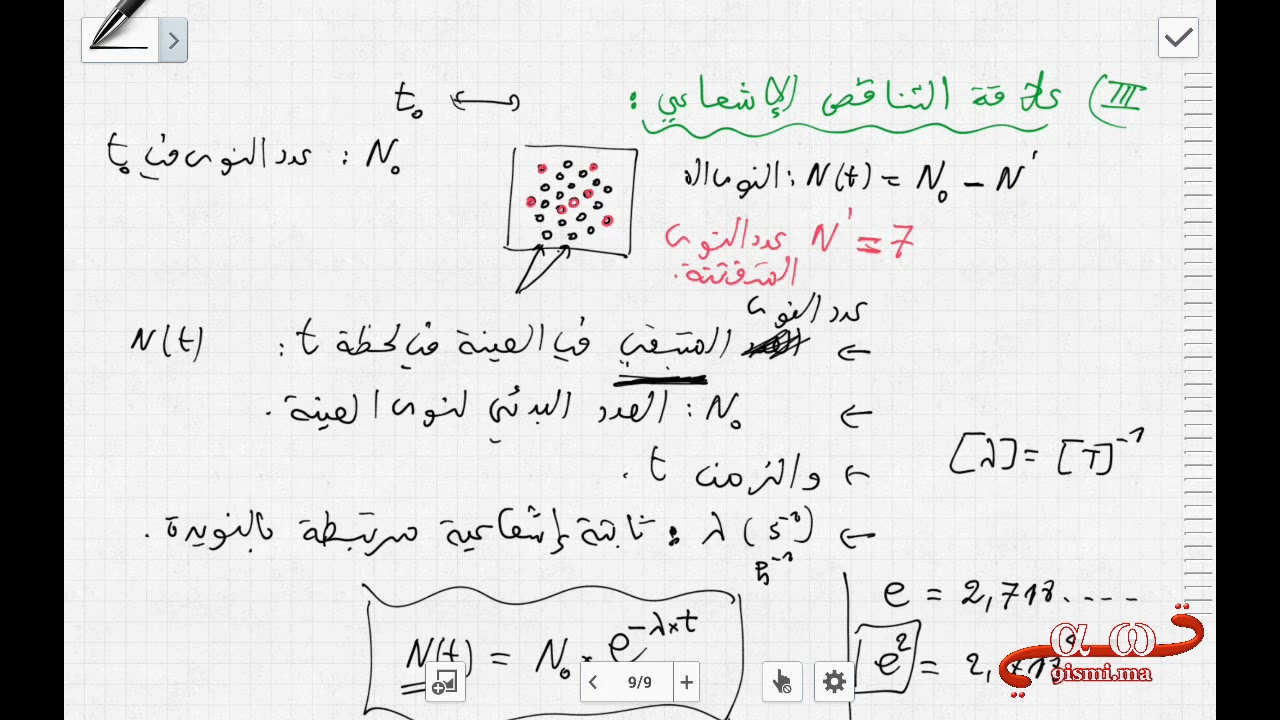 III) علاقة التناقص الإشعاعي :
t₀
N₀ : عدد النوى في t₀
N(t) = N₀ - N' : النوى الم
N' = 7 عدد النوى
المتفتتة.
عدد النوى
المتبقي في العينة في لحظة t : N(t)
N₀ : العدد البدئي لنوى العينة.
[λ] = [T]⁻¹
والزمن t.
λ (s⁻¹) : ثابتة إشعاعية مرتبطة بالنويدة.
h⁻¹
e = 2,718....
N(t) = N₀ × e^(-λ×t)
e² = 2,718²
9/9
gismi.ma